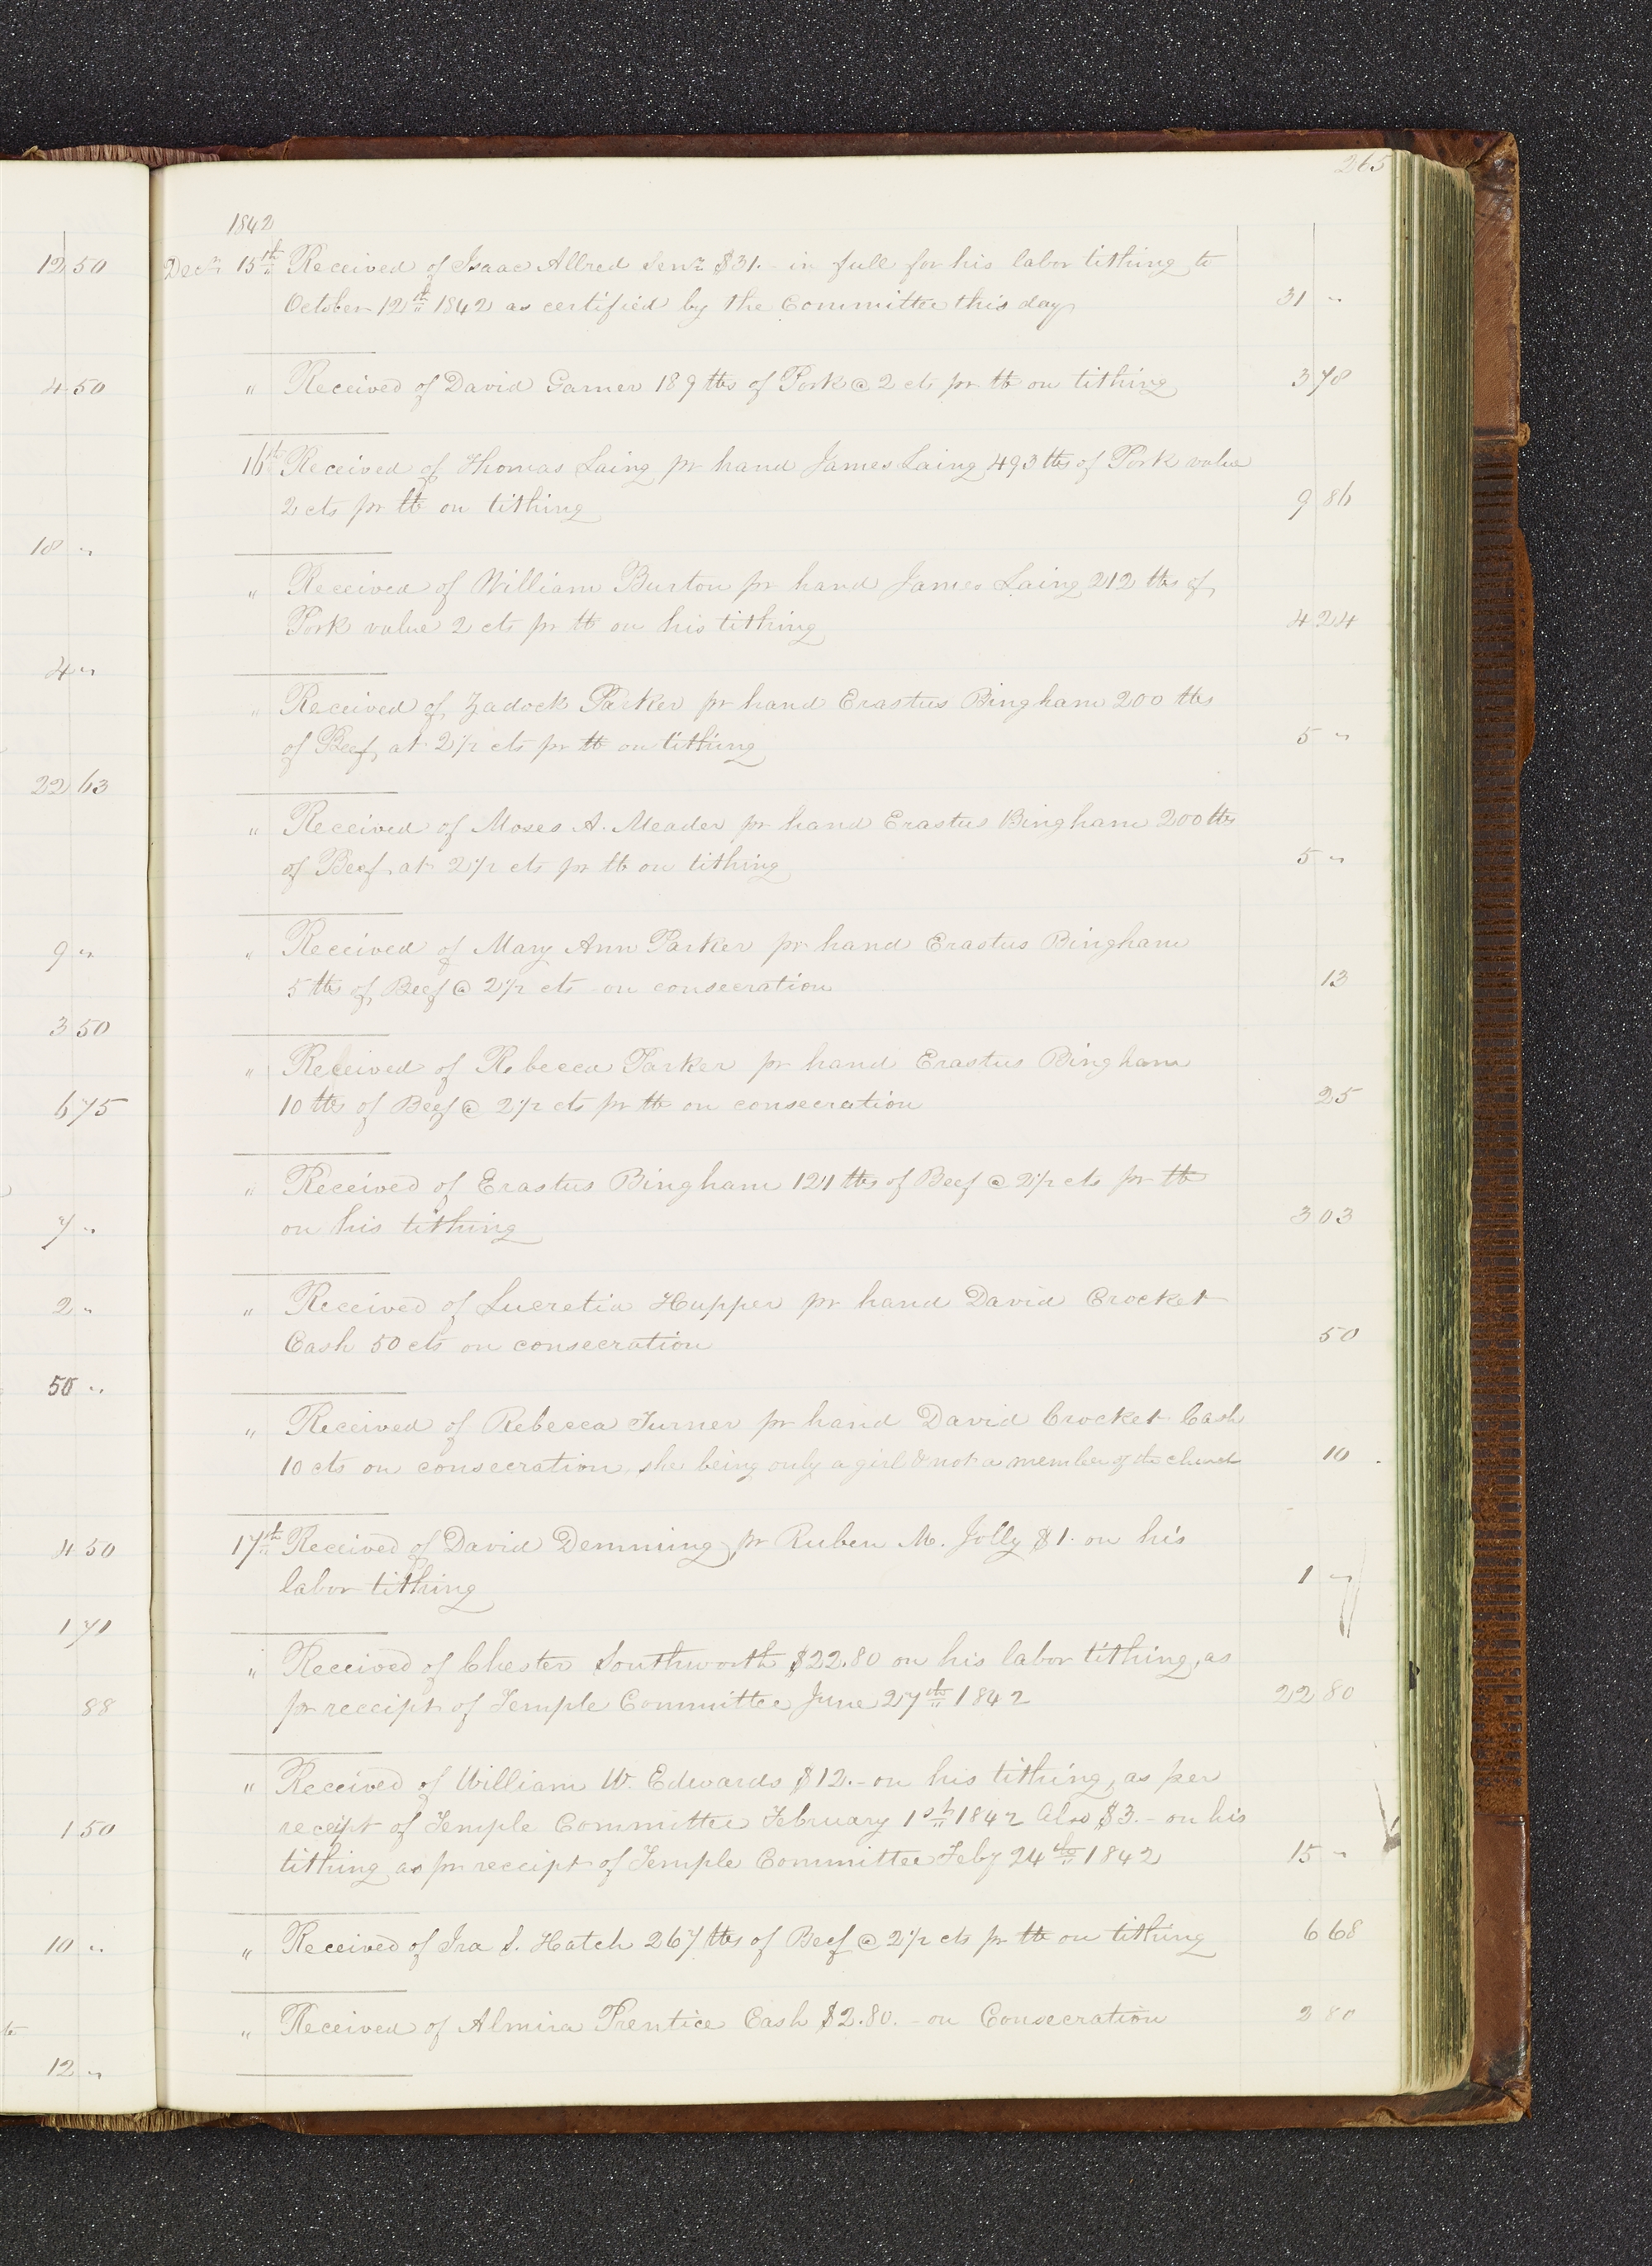 265
1842
Decr. 15th Received of Isaac Allred Senr. $31.- in full for his labor tithing to
October 12th 1842 as certified by the Committee this day 31 "
" Received of David Garner 189 lbs of Pork @ 2 cts pr lb on tithing 3 78
16th Received of Thomas Laing pr hand James Laing 493 lbs of Pork value
2 cts pr lb on tithing 9 86
" Received of William Burton pr hand James Laing 212 lbs of
Pork value 2 cts pr lb on his tithing 4 24
" Received of Zadock Parker pr hand Erastus Bingham 200 lbs
of Beef at 2 1/2 cts pr lb on tithing 5 "
" Received of Moses A. Meader pr hand Erastus Bingham 200 lbs
of Beef at 2 1/2 cts pr lb on tithing 5 "
" Received of Mary Ann Parker pr hand Erastus Bingham
5 lbs of Beef @ 2 1/2 cts on consecration 13
" Received of Rebecca Parker pr hand Erastus Bingham
10 lbs of Beef @ 2 1/2 cts pr lb on consecration 25
" Received of Erastus Bingham 121 lbs of Beef @ 2 1/2 cts pr lb
on his tithing 3 03
" Received of Lucretia Hupper pr hand David Crocket
Cash 50 cts on consecration 50
" Received of Rebecca Turner pr hand David Crocket Cash
10 cts on consecration, she being only a girl & not a member of the church 10
17th Received of David Demming pr Ruben M. Jolly $1. on his
labor tithing 1 "
" Received of Chester Southworth $22.80 on his labor tithing, as
pr receipt of Temple Committee June 27th 1842 22 80
" Received of William W. Edwards $12.- on his tithing, as per
receipt of Temple Committee February 1st 1842 Also $3.- on his
tithing as pr receipt of Temple Committee Feby 24th 1842 15 "
" Received of Ira S. Hatch 267 lbs of Beef @ 2 1/2 cts pr lb on tithing 6 68
" Received of Almira Prentice Cash $2.80.- on Consecration 2 80
12 50
4 50
18 "
4 "
22 63
9 "
3 50
6 75
7 "
2 "
50 "
4 50
1 71
88
1 50
10 "
12 "